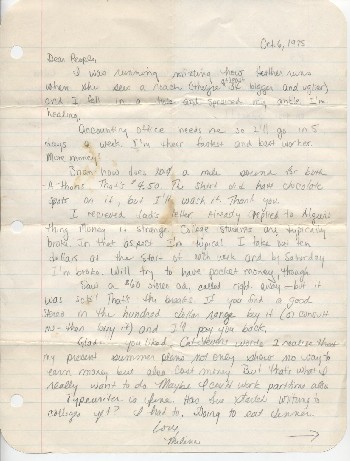 Oct. 6, 1975
Dear People,
I was running, mimicing how Heather runs
when she sees a roach (they're bigger and uglier)
and I fell in a hole and sprained my ankle. I'm
healing.
Accounting office needs me so I'll go in 5
days a week. I'm their fastest and best worker.
More money!
Brian now does a mile
A-thons. That's $4.50. The shirt did have chocolate
spots on it, but I'll wash it. Thank you.
I received Dad's letter. Already replied to
thing. Money is strange. College students are typically
broke. In that aspect I'm typical. I take out ten
dollars at the start of each week and by Saturday
I'm broke. Will try to have pocket money, though.
Saw a $60 stereo ad, called right away - but it
was sold! That's the breaks. If you find a good
stereo in the hundred dollar range buy it (or consult
me - then buy it) and I'll pay you back.
Glad you liked words. I realize that
my present summer plans not only show no way to
earn money but also cost money. But that's what I
really want to do. Maybe I could work part time also.
Typewriter is fine. Has she started writing to
colleges yet? I had to. Going to eat dinner.
Love,